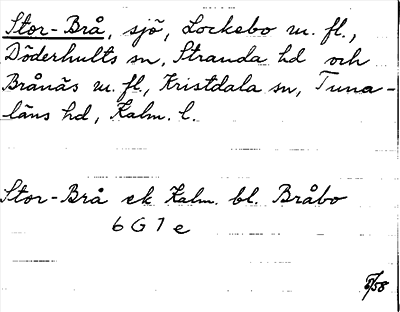 Stor-Brå, sjö, Lockebo m. fl.,
Döderhults sn, Stranda hd och
Brånäs m. fl., Kristdala sn, Tuna-
läns hd, Kalm. l.
Stor-Brå ek Kalm. bl. Bråbo
6 G 7 e
/58